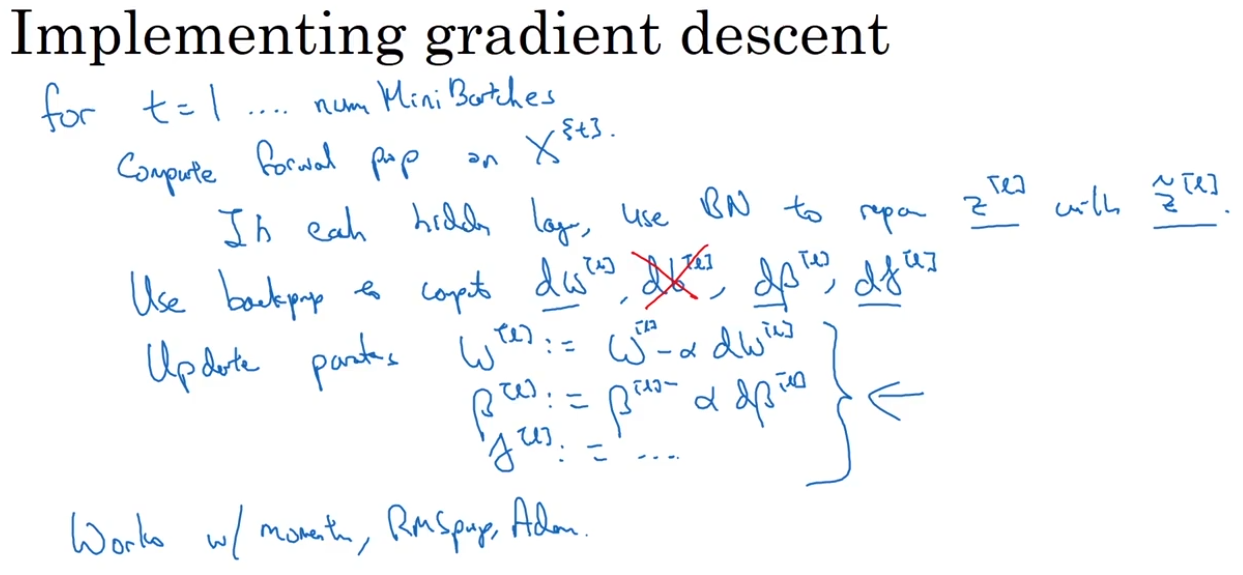 Implementing gradient descent
for t = 1 .... num Mini Batches
Compute forwal pop on X^{t}.
In each hidden lay, use BN to repon z^[l] with z̃^[l].
Use backprop to comput dw^[l], db^[l], dβ^[l], dγ^[l]
Update partes W^[l] := W^[l] - α dW^[l]
β^[l] := β^[l] - α dβ^[l]
γ^[l] := ....
Works w/ moment, RMSprop, Adam.